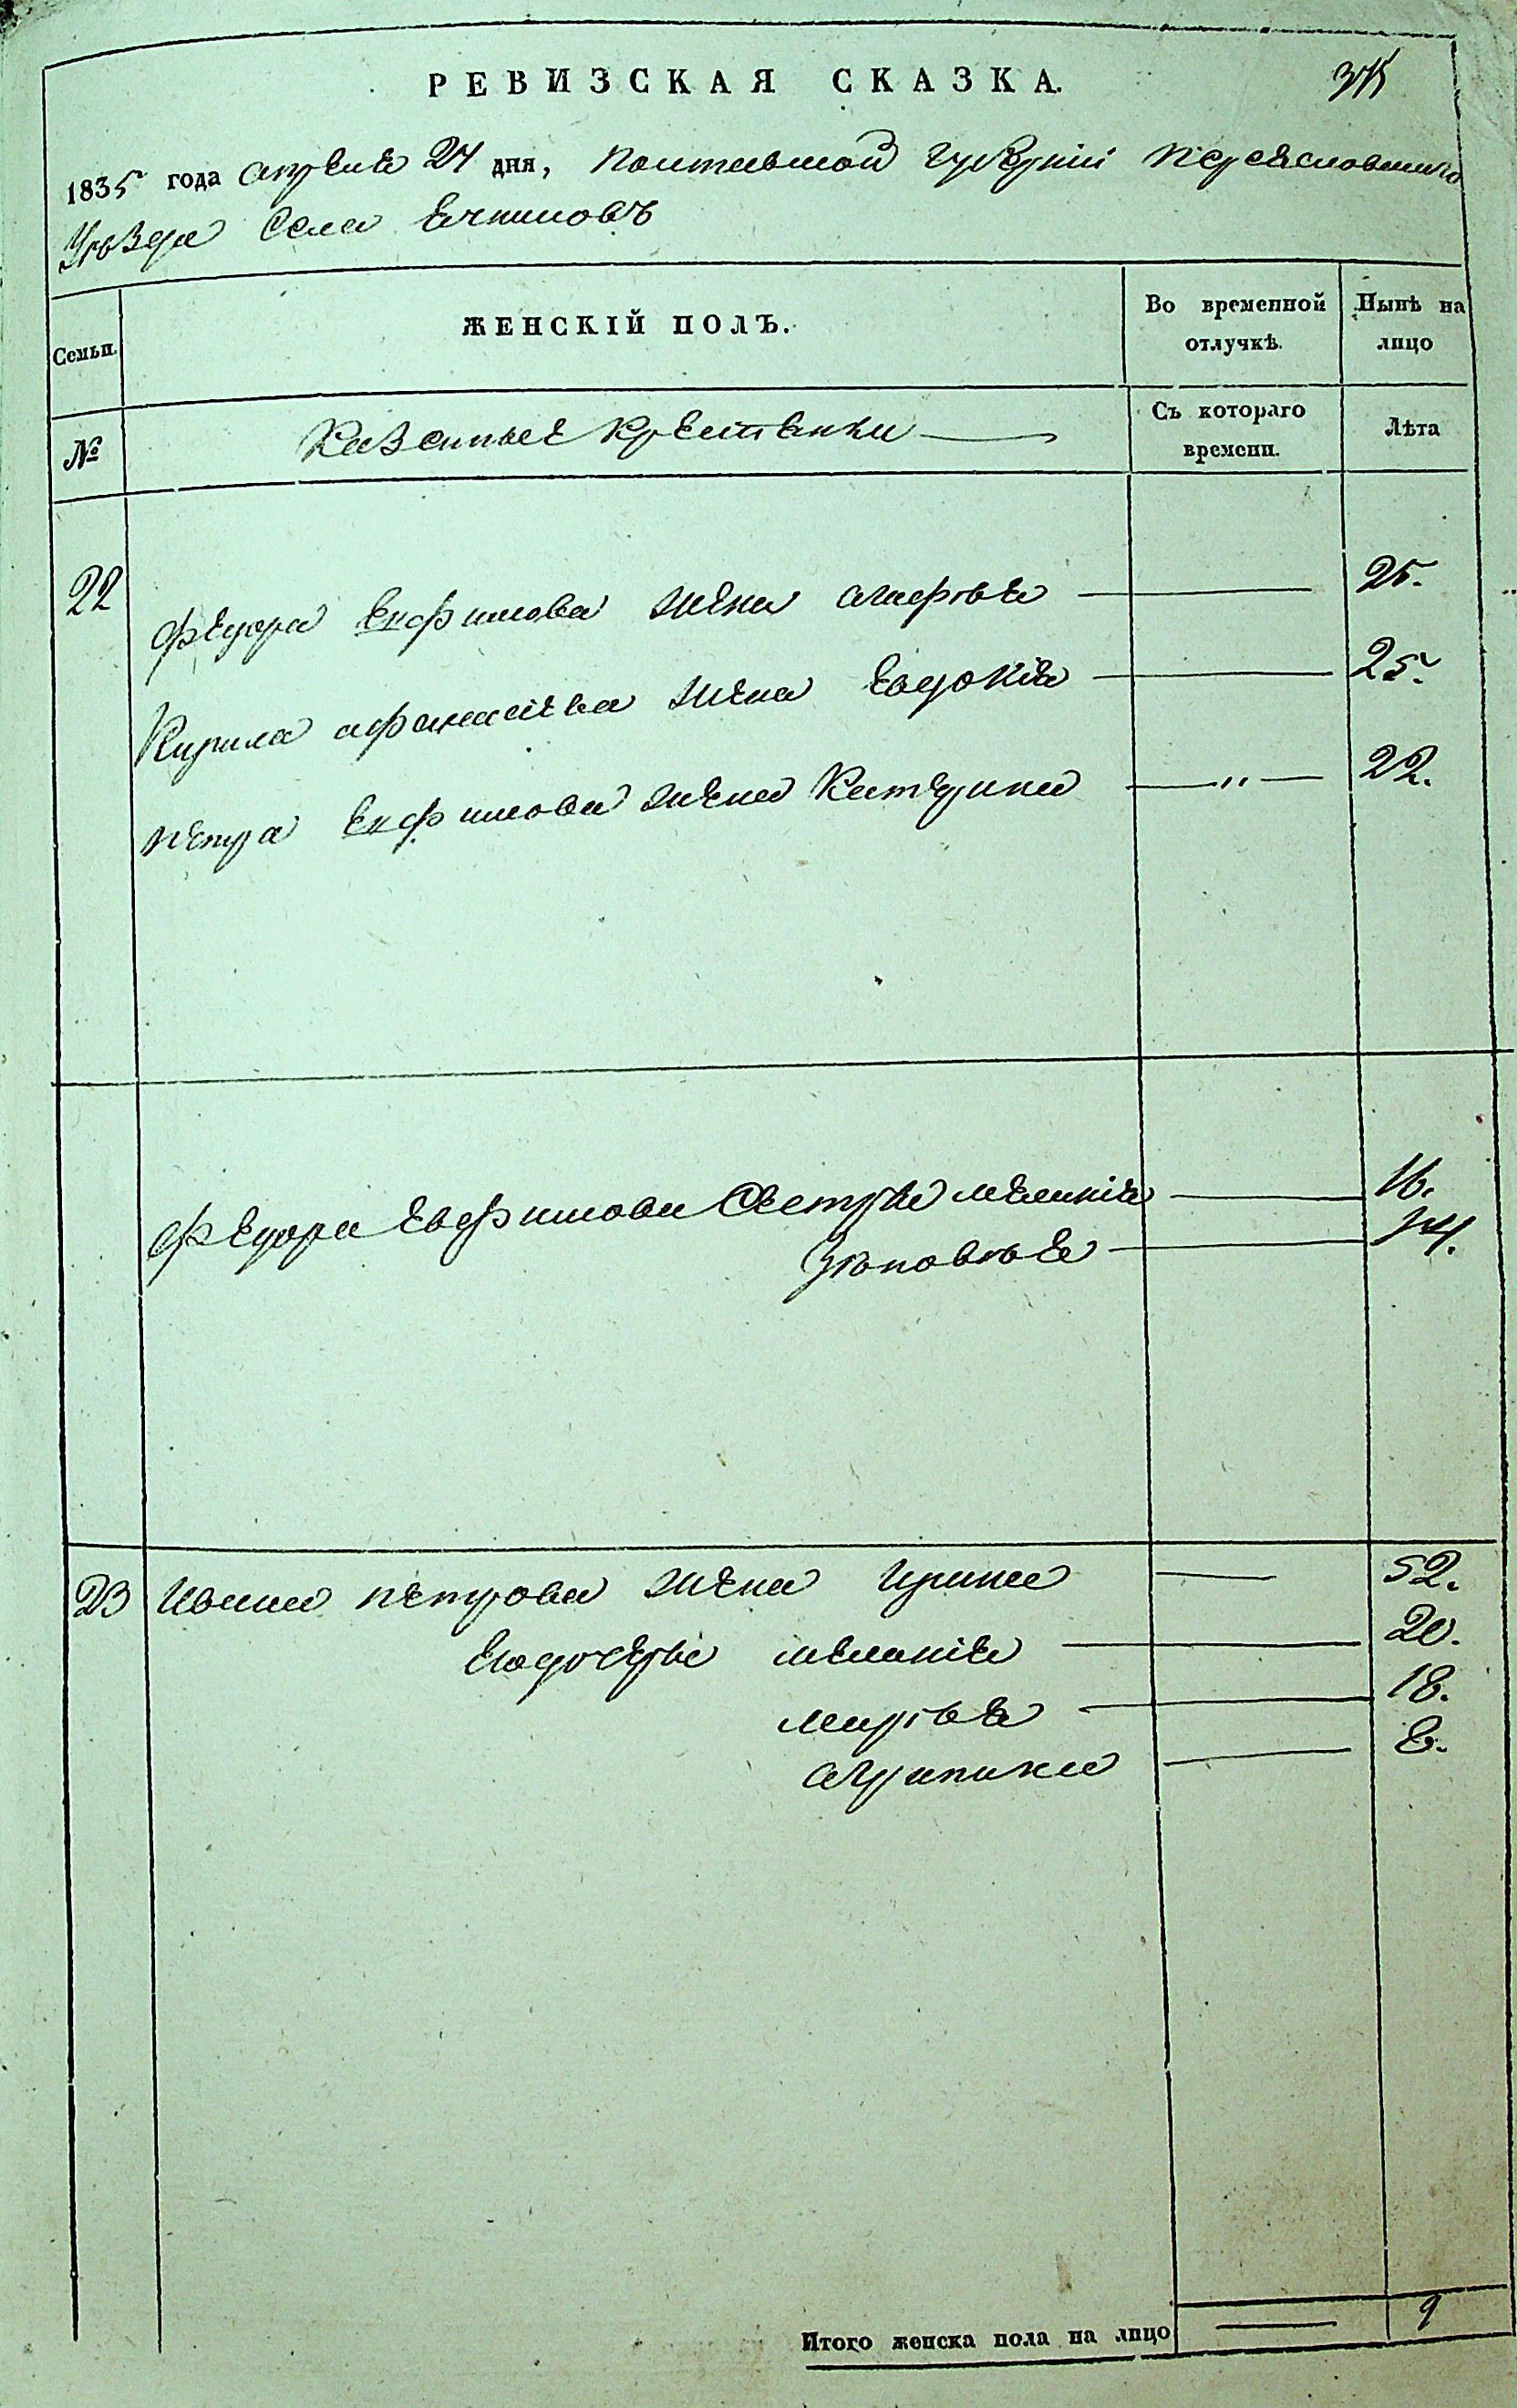 РЕВИЗСКАЯ СКАЗКА.
1835 года апреля 24 дня, Полтавской губернии Переясловского
Уѣзда Села Ячников
Семьи.
ЖЕНСКІЙ ПОЛЪ.
Во временной отлучкѣ.
Нынѣ на лицо
№
Казенные крестьянки
Съ котораго времени.
Лѣта
22 Федора Евфимова жена Агафья 25.
Кирила Афанасіева жена Евдокія 25.
Петра Евфимова жена Катерина — " — 22.
Федора Евфимова Сестры Меланія 16.
Зѣновья 14.
23 Ивана Петрова жена Ирина 52.
Меланія 20.
Марья 18.
Агрипина 8.
Итого женска пола на лицо 9